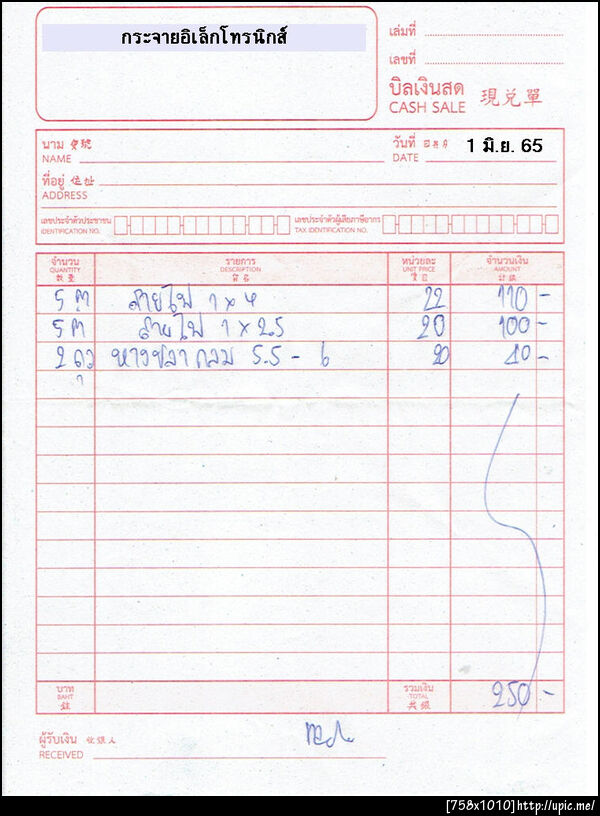 กระจายอิเล็กโทรนิกส์
เล่มที่
เลขที่
บิลเงินสด 現兌單
CASH SALE
นาม 寶號
NAME
วันที่ 日期
DATE 1 มิ.ย. 65
ที่อยู่ 住址
ADDRESS
เลขประจำตัวประชาชน
IDENTIFICATION NO.
เลขประจำตัวผู้เสียภาษีอากร
TAX IDENTIFICATION NO.
จำนวน รายการ หน่วยละ จำนวนเงิน
QUANTITY DESCRIPTION UNIT PRICE AMOUNT
數量 貨名
5 ม สายไฟ 1 x 4 22 110 -
5 ม สายไฟ 1 x 2.5 20 100 -
2 ถุง หางปลา กลม 5.5 - 6 20 40 -
บาท รวมเงิน
BAHT TOTAL 250 -
銖 共銀
ผู้รับเงิน 收銀人
RECEIVED
[758x1010]http://upic.me/